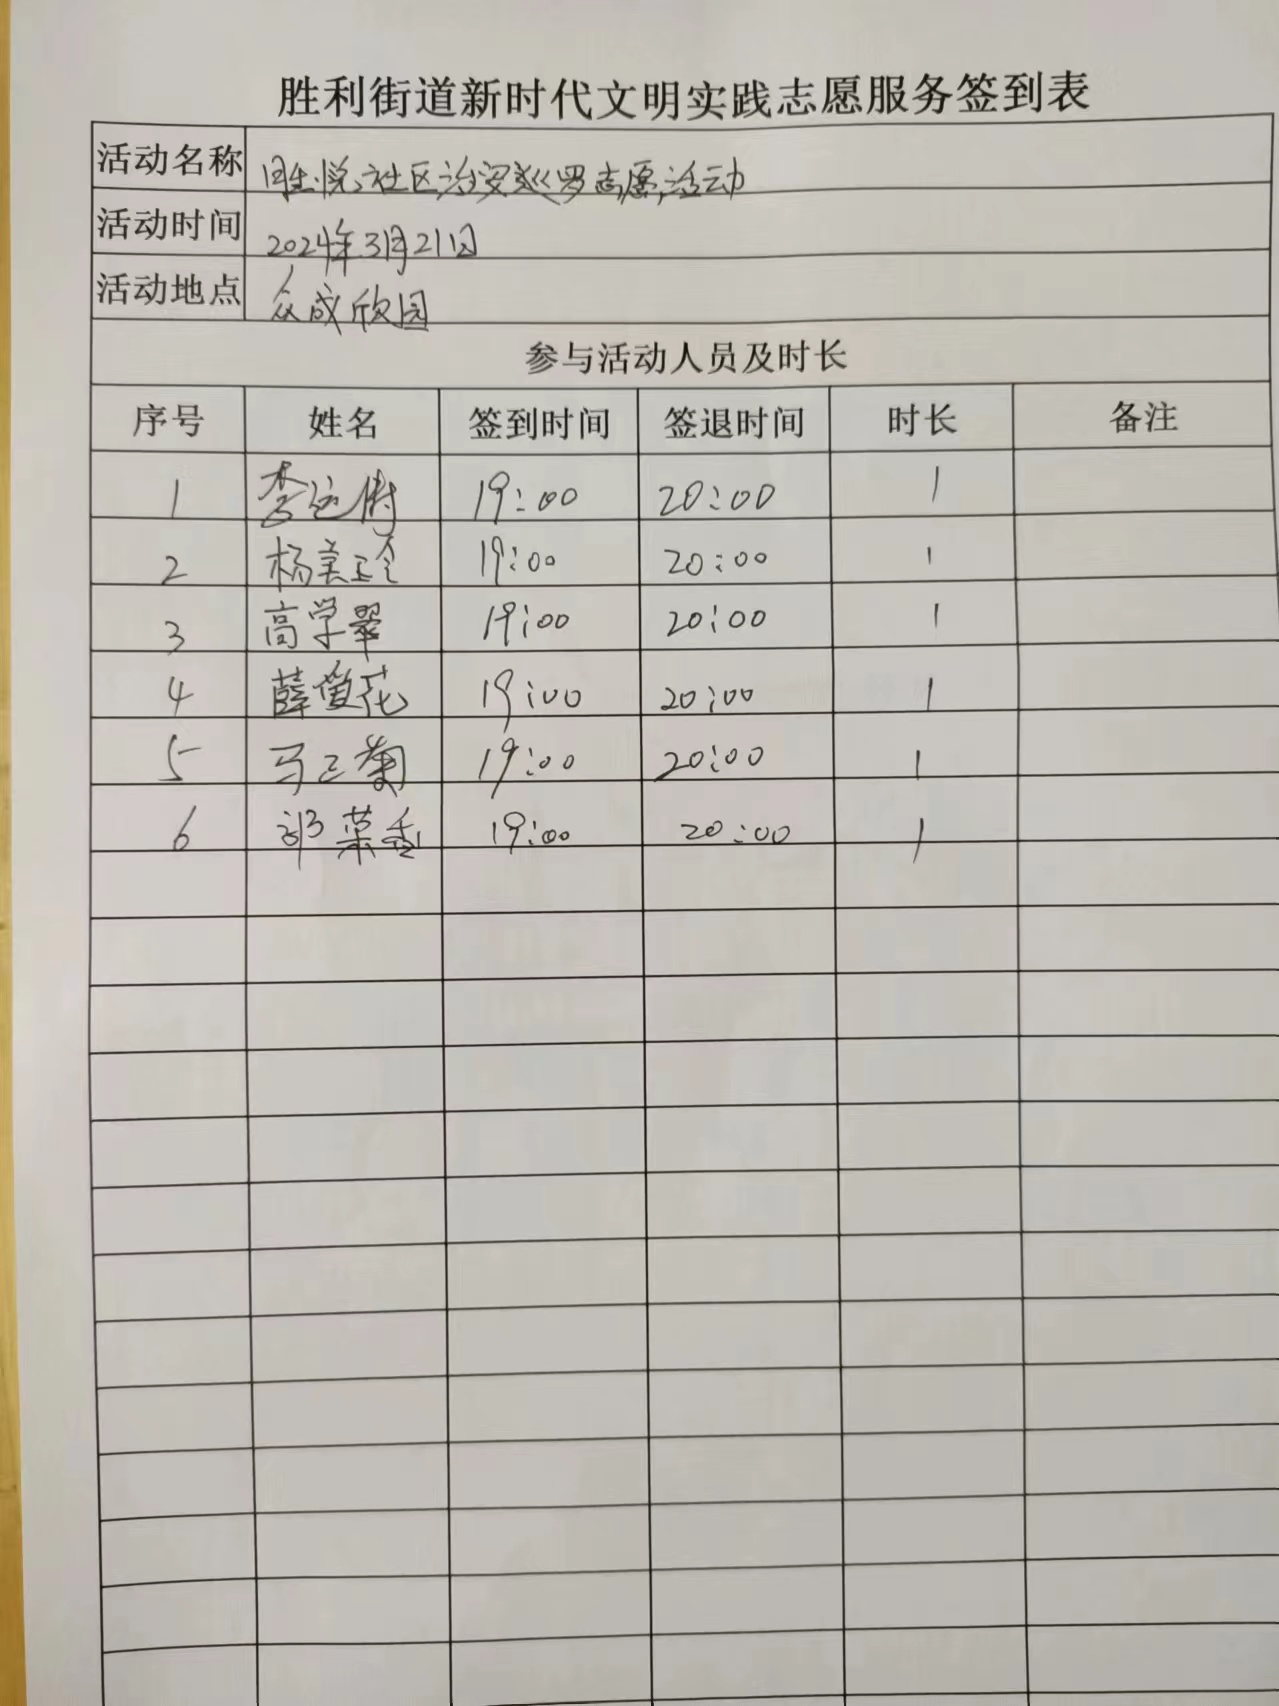 胜利街道新时代文明实践志愿服务签到表
活动名称 胜悦社区治安巡罗志愿活动
活动时间 2024年3月21日
活动地点 众成欣园
参与活动人员及时长
序号 姓名 签到时间 签退时间 时长 备注
1 李 19:00 20:00 1
2 杨美玲 19:00 20:00 1
3 高学翠 19:00 20:00 1
4 薛 花 19:00 20:00 1
5 马三菊 19:00 20:00 1
6 菜香 19:00 20:00 1